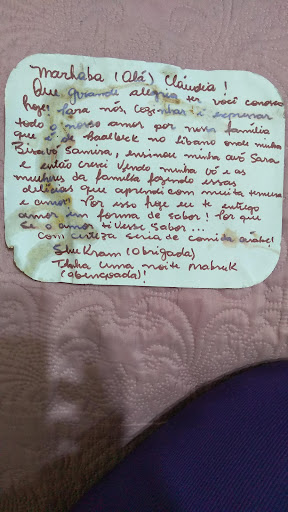 Marhaba (Olá) Cláudia!
Que grande alegria ter você conosco
hoje! Para nós, cozinhar é expressar
todo o nosso amor por nossa família
que é de Baalbeck no líbano onde minha
Bisavó Samira, ensinou minha avó Sara
e então cresci vendo minha vó e as
mulheres da família fazendo essas
delícias que aprendi com muita ternura
e amor. Por isso hoje eu te entrego
amor em forma de sabor! Por que
se o amor tivesse sabor...
Com certeza seria de comida árabe!
ShuKram (Obrigada)
Tenha uma noite mabruk
(abençoada)!